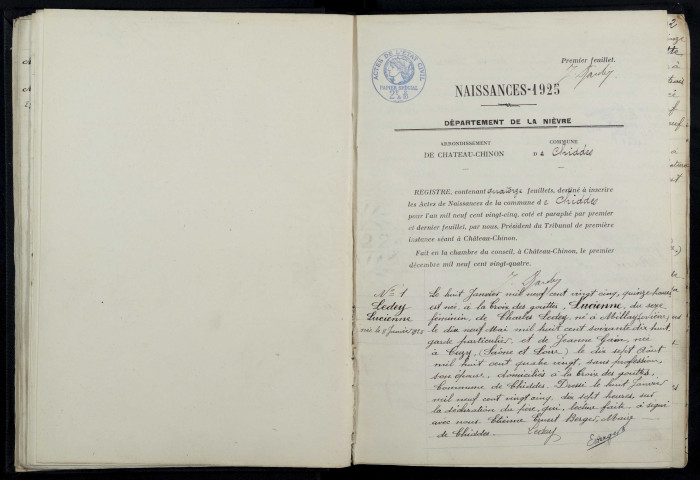 Premier feuillet.
ACTES DE L'ÉTAT CIVIL
PAPIER SPÉCIAL
NAISSANCES-1925
DÉPARTEMENT DE LA NIÈVRE
ARRONDISSEMENT
DE CHATEAU-CHINON
COMMUNE
DE Chiddes
REGISTRE, contenant quatorze feuillets, destiné à inscrire
les Actes de Naissances de la commune de Chiddes
pour l'an mil neuf cent vingt-cinq, coté et paraphé par premier
et dernier feuillet, par nous, Président du Tribunal de première
instance séant à Château-Chinon.
Fait en la chambre du conseil, à Château-Chinon, le premier
décembre mil neuf cent vingt-quatre.
N° 1
Ledey
Lucienne
née le 8 Janvier 1925
Le huit Janvier mil neuf cent vingt cinq, quinze heures
est née à la Croix des gouttes, Lucienne, du sexe
féminin, de Charles Ledey, né à Millay (Nièvre)
le dix neuf Mai mil huit cent soixante dix huit,
garde particulier, et de Jeanne Gain, née
à Cuzy, (Saône et Loire) le dix sept Août
mil huit cent quatre vingt, sans profession,
son épouse, domiciliés à la Croix des gouttes,
Commune de Chiddes. Dressé le huit Janvier
mil neuf cent vingt cinq, dix sept heures, sur
la déclaration du père, qui, lecture faite, a signé
avec nous Etienne Ernest Berger, Maire
de Chiddes. Ledey